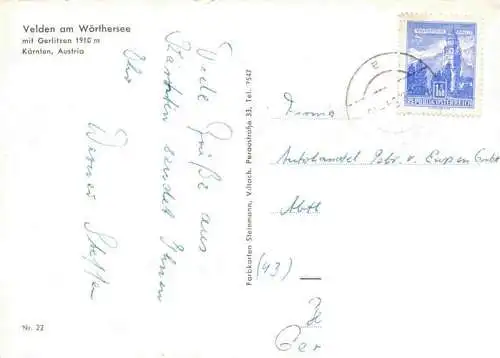 Velden am Wörthersee
mit Gerlitzen 1910 m
Kärnten, Austria
Viele Grüße aus
Kärnten sendet Ihnen
Ihr
Werner Steffen
Nr. 22
Farbkarten Steinmann, Villach, Peraustraße 33, Tel. 7542
REPUBLIK ÖSTERREICH
Firma
Autohandel Gebr. v. Eupen GmbH
Abtl
(43)